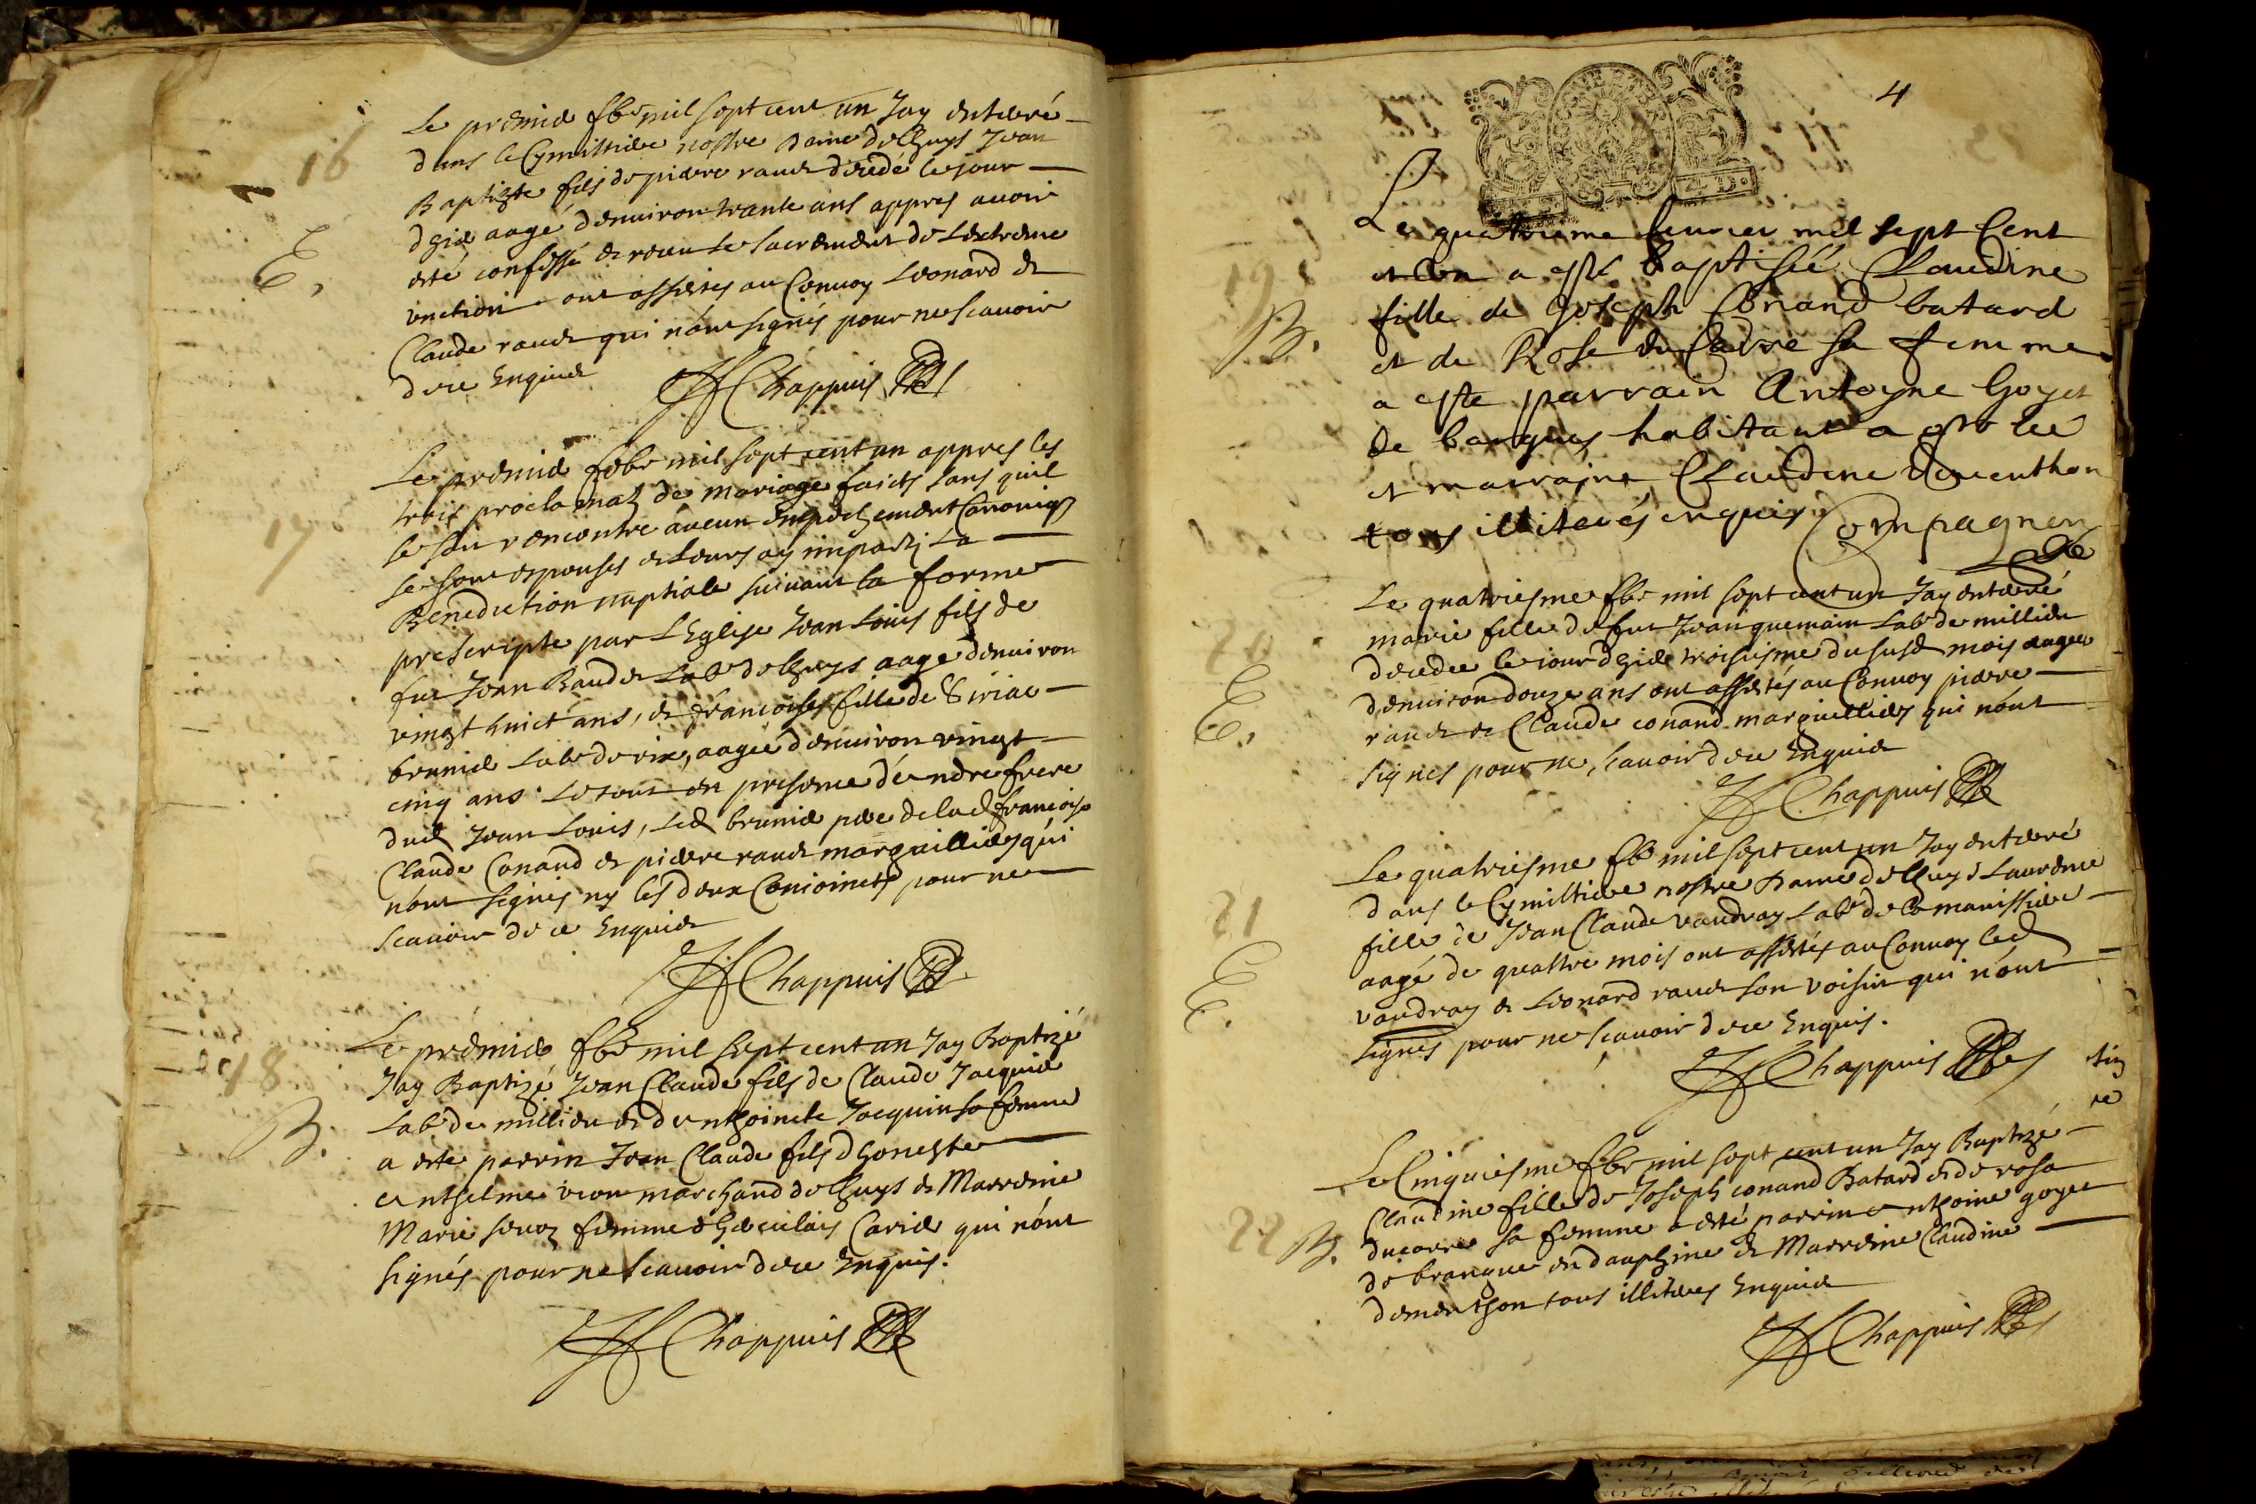 16
E,
Le premier fbr mil sept cent un Jay enterré
dans le Cymittiere nostre Dame de lhuys Jean
Baptiste fils de pierre raude decedé le jour
dhier aagé denviron trante ans appres avoir
esté confessé et receu le sacrement de Lextreme
onction ont assistes au Convoy Leonard et
Claude raude qui nont signés pour ne scavoir
de ce Enquis
Chappuis
17
Le premier febr mil sept cent un appres les
trois proclamaõn de mariage faicts sans quil
se soit rencontre aucun Empechement Canoniq
se sont espouses et Leurs ay imparti La
Benediction nuptiale suivant la forme
prescripte par LEglise Jean Louis fils de
fut Jean Baude Labr de lhuys aage denviron
vingt huict ans, et francoise fille de Siriac
brunier Labr de rix, aagée denviron vingt
cinq ans Le tout en presence de andre frere
dud Jean Louis, led brunier pere de lad francoise
Claude Conand et pierre raude marguilliers qui
nont signés ny les deux Conioincts pour ne
scavoir de ce Enquis
Chappuis
18
B.
Le premier fbr mil sept cent un Jay Baptizé
Jay Baptizé Jean Claude fils de Claude Jacquin
Labr de millieu et de anthoinete Jacquin sa femme
a esté parrin Jean Claude fils dhoneste
anthelme marchand de lhuys et Marreine
Marie femme Carier qui nont
signés pour ne scavoir de ce Enquis.
Chappuis
4
19
B.
Le quatrieme fevrier mil sept Cent
et Un a esté Baptisée Claudine
fille de Joseph Conand batard
et de Rose du Carre sa femme
a este parrain Antoyne Goyet
de branques habitant
et marraine Claudine Dementhon
tous illiterés enquis Compagnon
20
E.
Le quatriesme fbr mil sept cent un Jay enterré
marie fille de fut Jean quemain Labr de millieu
decedee le jour dhier troisiesme du susd mois aagee
denviron douze ans ont assistés au Convoy pierre
raude et Claude conand marguilliers qui nont
signes pour ne scavoir de ce Enquis
Chappuis
21
E.
Le quatriesme fbr mil sept cent un Jay enterré
dans le Cymittiere nostre Dame de lhuys Laurence
fille de Jean Claude vaudray Labr de manissieu
aagé de quattre mois ont assistés au Convoy led
vaudray et Leonard raude son voisin qui nont
signes pour ne scavoir de ce Enquis.
Chappuis
22
B.
Le Cinquiesme fbr mil sept cent un Jay Baptizé
Claudine fille de Joseph conand Batard et de rosa
ducarre sa femme a esté parrin anthoine goyet
de branque en dauphine et Marreine Claudine
dementhon tous illiteres Enquis
Chappuis